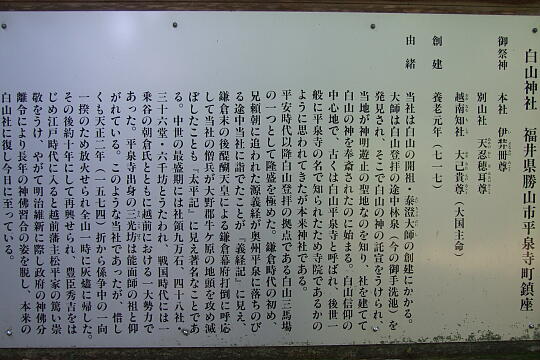 白山神社　福井県勝山市平泉寺町鎮座
御祭神　本社　伊弉冊尊
別山社　天忍穂耳尊
越南知社　大己貴尊（大国主命）
創建　養老元年（七一七）
由緒　当社は白山の開祖・泰澄大師の創建にかかる。
大師は白山登拝の途中林泉（今の御手洗池）を
発見され、そこで白山の神の託宣をうけられて
当地が神明遊止の聖地なのを知り、社を建てて
白山の神を奉斎されたのに始まる。白山信仰の
中心地で、古くは白山平泉寺と呼ばれ、後世一
般に平泉寺の名で知られたため寺院であるかの
ように思われてきたが本来神社である。
平安時代以降白山登拝の拠点である白山三馬場
の一つとして隆盛を極めた。鎌倉時代の初め、
兄頼朝に追われた源義経が奥州平泉に落ちのび
る途中当社に詣でたことが『義経記』に見え、
鎌倉末の後醍醐天皇による鎌倉幕府打倒に呼応
して当社の僧兵が大野郡牛ケ原の地頭を攻め滅
ぼしたことも『太平記』に見え著名なことであ
る。中世の最盛期には社領九万石、四十八社・
三十六堂・六千坊とうたわれ、戦国時代には一
乗谷の朝倉氏とともに越前における一大勢力で
あった。平泉寺出身の三光坊は能面師の祖と仰
がれている。このような当社であったが、惜し
くも天正二年（一五七四）折から係争中の一向
一揆のため放火せられ全山一時に灰燼に帰した。
その後約十年にして再興せられ、豊臣秀吉をは
じめ江戸時代に入ると越前藩主松平家の篤い崇
敬をうけ、やがて明治維新に際し政府の神佛分
離令により長年の神佛習合の姿を脱し、本来の
白山神社に復し今日に至っている。